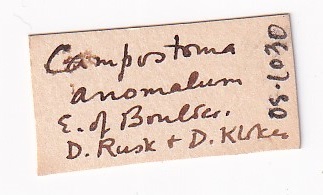 Campostoma
anomalum
E. of Boulder.
D. Rusk + D. Klokes
OS-1030